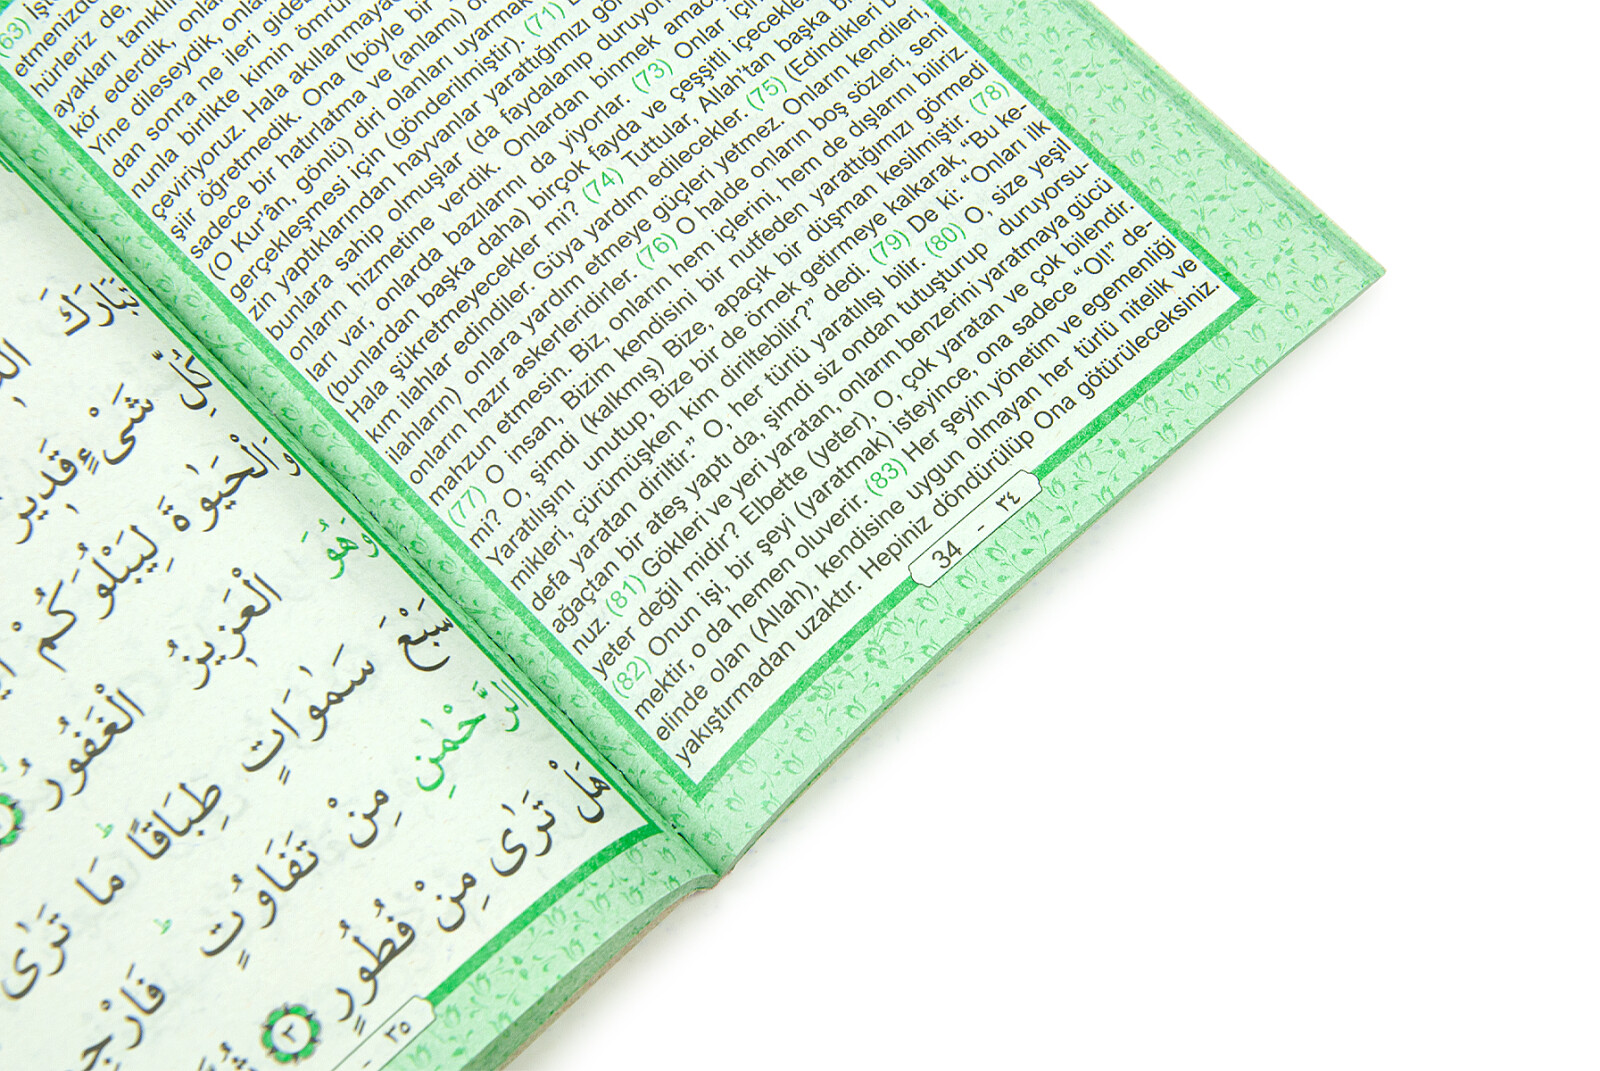 63) İşte
etmenizde
hürleriz de,
ayakları tanıklık
kör ederdik,
Yine dileseydik,
dan sonra ne ileri
nunla birlikte kimin
çeviriyoruz. Hala
şiir öğretmedik. Ona (böyle bir
sadece bir hatırlatma ve (anlamı)
(O Kur'ân, gönlü) diri olanları uyarmak
gerçekleşmesi için (gönderilmiştir). (71)
zin yaptıklarından hayvanlar yarattığımızı
bunlara sahip olmuşlar (da faydalanıp
onların hizmetine verdik. Onlardan binmek
ları var, onlarda bazılarını da yiyorlar. (73) Onlar için
(bunlardan başka daha) birçok fayda ve çeşşitli içecekler
Hala şükretmeyecekler mi? (74) Tuttular, Allah'tan başka
kım ilahlar edindiler. Güya yardım edilecekler. (75) (Edindikleri
ilahların) onlara yardım etmeye güçleri yetmez. Onların kendileri,
onların hazır askerleridirler. (76) O halde onların boş sözleri, seni
mahzun etmesin. Biz, onların hem içlerini, hem de dışlarını biliriz.
(77) O insan, Bizim kendisini bir nutfeden yarattığımızı görmedi
mi? O, şimdi (kalkmış) Bize, apaçık bir düşman kesilmiştir. (78)
Yaratılışını unutup, Bize bir de örnek getirmeye kalkarak, “Bu ke-
mikleri, çürümüşken kim diriltebilir?” dedi. (79) De ki: “Onları ilk
defa yaratan diriltir.” O, her türlü yaratılışı bilir. (80) O, size yeşil
ağaçtan bir ateş yaptı da, şimdi siz ondan tutuşturup duruyorsu-
nuz. (81) Gökleri ve yeri yaratan, onların benzerini yaratmaya gücü
yeter değil midir? Elbette (yeter), O, çok yaratan ve çok bilendir.
(82) Onun işi, bir şeyi (yaratmak) isteyince, ona sadece “Ol!” de-
mektir, o da hemen oluverir. (83) Her şeyin yönetim ve egemenliği
elinde olan (Allah), kendisine uygun olmayan her türlü nitelik ve
yakıştırmadan uzaktır. Hepiniz döndürülüp Ona götürüleceksiniz.
34 - ٣٤
تَبَارَكَ
كُلِّ شَىْءٍ قَدِيرٌ
وَالْحَيٰوةَ لِيَبْلُوَكُمْ
وَهُوَ الْعَزِيزُ الْغَفُورُ
سَبْعَ سَمٰوَاتٍ طِبَاقًا مَا تَرٰى
الرَّحْمٰنِ مِنْ تَفَاوُتٍ فَارْجِعِ
هَلْ تَرٰى مِنْ فُطُورٍ ٣
- ٣٥